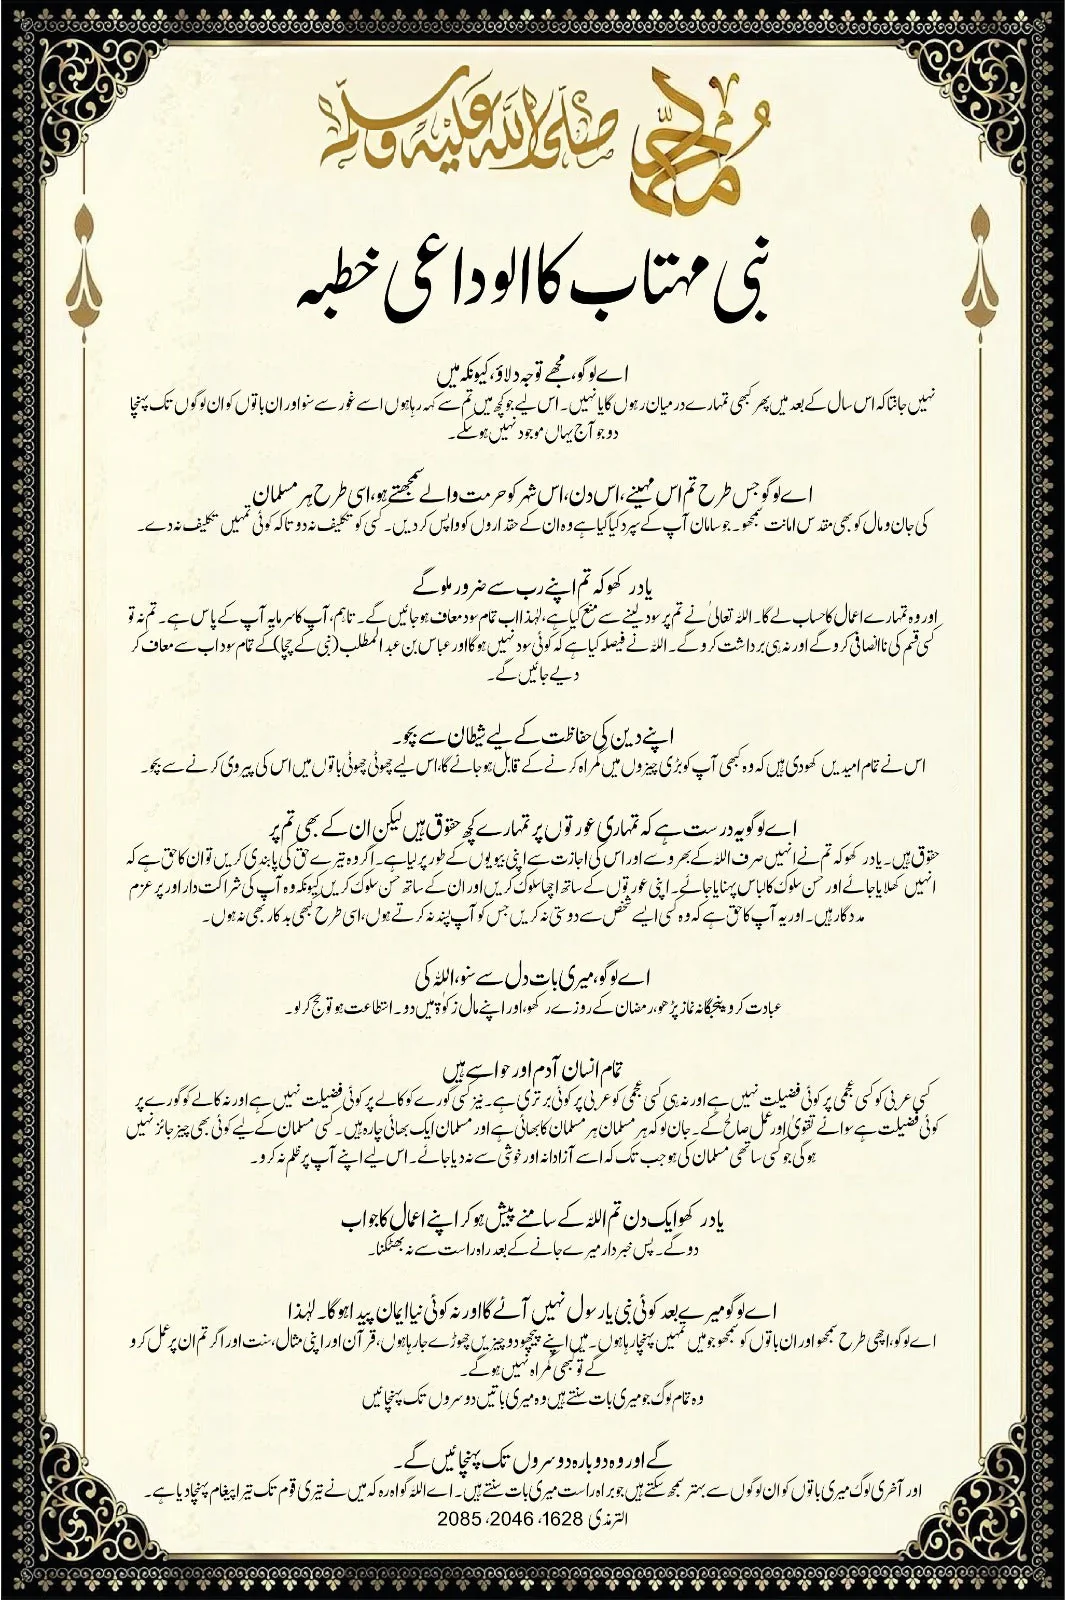 محمد صلی اللہ علیہ وسلم
نبی مہتاب کا الوداعی خطبہ
اے لوگو، مجھے توجہ دلاؤ، کیونکہ میں
نہیں جانتا کہ اس سال کے بعد میں پھر کبھی تمہارے درمیان رہوں گا یا نہیں۔ اس لیے جو کچھ میں تم سے کہہ رہا ہوں اسے غور سے سنو اور ان باتوں کو ان لوگوں تک پہنچا
دو جو آج یہاں موجود نہیں ہو سکے۔
اے لوگو جس طرح تم اس مہینے، اس دن، اس شہر کو حرمت والے سمجھتے ہو، اسی طرح ہر مسلمان
کی جان و مال کو بھی مقدس امانت سمجھو۔ جو سامان آپ کے سپرد کیا گیا ہے وہ ان کے حقداروں کو واپس کر دیں۔ کسی کو تکلیف نہ دو تاکہ کوئی تمہیں تکلیف نہ دے۔
یاد رکھو کہ تم اپنے رب سے ضرور ملو گے
اور وہ تمہارے اعمال کا حساب لے گا۔ اللہ تعالیٰ نے تم پر سود لینے سے منع کیا ہے، لہٰذا اب تمام سود معاف ہو جائیں گے۔ تاہم، آپ کا سرمایہ آپ کے پاس ہے۔ تم نہ تو
کسی قسم کی ناانصافی کرو گے اور نہ ہی برداشت کرو گے۔ اللہ نے فیصلہ کیا ہے کہ کوئی سود نہیں ہو گا اور عباس بن عبد المطلب (نبی کے چچا) کے تمام سود اب سے معاف کر
دیے جائیں گے۔
اپنے دین کی حفاظت کے لیے شیطان سے بچو۔
اس نے تمام امیدیں کھو دی ہیں کہ وہ کبھی آپ کو بڑی چیزوں میں گمراہ کرنے کے قابل ہو جائے گا، اس لیے چھوٹی چھوٹی باتوں میں اس کی پیروی کرنے سے بچو۔
اے لوگو یہ درست ہے کہ تمہاری عورتوں پر تمہارے کچھ حقوق ہیں لیکن ان کے بھی تم پر
حقوق ہیں۔ یاد رکھو کہ تم نے انہیں صرف اللہ کے بھروسے اور اس کی اجازت سے اپنی بیویوں کے طور پر لیا ہے۔ اگر وہ تیرے حق کی پابندی کریں تو ان کا حق ہے کہ
انہیں کھلایا جائے اور حسن سلوک کا لباس پہنایا جائے۔ اپنی عورتوں کے ساتھ اچھا سلوک کریں اور ان کے ساتھ حسن سلوک کریں کیونکہ وہ آپ کی شراکت دار اور پرعزم
مددگار ہیں۔ اور یہ آپ کا حق ہے کہ وہ کسی ایسے شخص سے دوستی نہ کریں جس کو آپ پسند نہ کرتے ہوں، اسی طرح کبھی بدکار بھی نہ ہوں۔
اے لوگو، میری بات دل سے سنو، اللہ کی
عبادت کرو پنجگانہ نماز پڑھو، رمضان کے روزے رکھو، اور اپنے مال زکوٰۃ میں دو۔ استطاعت ہو تو حج کر لو۔
تمام انسان آدم اور حوا سے ہیں
کسی عربی کو کسی عجمی پر کوئی فضیلت نہیں ہے اور نہ ہی کسی عجمی کو عربی پر کوئی برتری ہے۔ نیز کسی گورے کو کالے پر کوئی فضیلت نہیں ہے اور نہ کالے کو گورے پر
کوئی فضیلت ہے سوائے تقویٰ اور عمل صالح کے۔ جان لو کہ ہر مسلمان ہر مسلمان کا بھائی ہے اور مسلمان ایک بھائی چارہ ہیں۔ کسی مسلمان کے لیے کوئی بھی چیز جائز نہیں
ہو گی جو کسی ساتھی مسلمان کی ہو جب تک کہ اسے آزادانہ اور خوشی سے نہ دیا جائے۔ اس لیے اپنے آپ پر ظلم نہ کرو۔
یاد رکھو ایک دن تم اللہ کے سامنے پیش ہو کر اپنے اعمال کا جواب
دو گے۔ پس خبردار میرے جانے کے بعد راہ راست سے نہ بھٹکنا۔
اے لوگو میرے بعد کوئی نبی یا رسول نہیں آئے گا اور نہ کوئی نیا ایمان پیدا ہو گا۔ لہٰذا
اے لوگو، اچھی طرح سمجھو اور ان باتوں کو سمجھو جو میں تمہیں پہنچا رہا ہوں۔ میں اپنے پیچھے دو چیزیں چھوڑے جا رہا ہوں، قرآن اور اپنی مثال، سنت اور اگر تم ان پر عمل کرو
گے تو کبھی گمراہ نہیں ہو گے۔
وہ تمام لوگ جو میری بات سنتے ہیں وہ میری باتیں دوسروں تک پہنچائیں
گے اور وہ دوبارہ دوسروں تک پہنچائیں گے۔
اور آخری لوگ میری باتوں کو ان لوگوں سے بہتر سمجھ سکتے ہیں جو براہ راست میری بات سنتے ہیں۔ اے اللہ گواہ رہ کہ میں نے تیری قوم تک تیرا پیغام پہنچا دیا ہے۔
الترمذی 1628، 2046، 2085